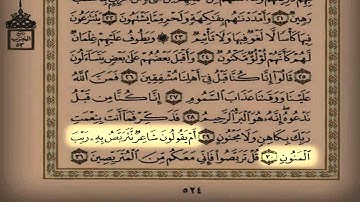 رَهِينٌ ٢١ وَأَمْدَدْنَٰهُم بِفَٰكِهَةٍ وَلَحْمٍ مِّمَّا يَشْتَهُونَ ٢٢ يَتَنَٰزَعُونَ
فِيهَا كَأْسًا لَّا لَغْوٌ فِيهَا وَلَا تَأْثِيمٌ ٢٣ ۞ وَيَطُوفُ عَلَيْهِمْ غِلْمَانٌ
لَّهُمْ كَأَنَّهُمْ لُؤْلُؤٌ مَّكْنُونٌ ٢٤ وَأَقْبَلَ بَعْضُهُمْ عَلَىٰ بَعْضٍ يَتَسَآءَلُونَ
٢٥ قَالُوٓا۟ إِنَّا كُنَّا قَبْلُ فِىٓ أَهْلِنَا مُشْفِقِينَ ٢٦ فَمَنَّ ٱللَّهُ
عَلَيْنَا وَوَقَىٰنَا عَذَابَ ٱلسَّمُومِ ٢٧ إِنَّا كُنَّا مِن قَبْلُ
نَدْعُوهُ إِنَّهُۥ هُوَ ٱلْبَرُّ ٱلرَّحِيمُ ٢٨ فَذَكِّرْ فَمَآ أَنتَ بِنِعْمَتِ
رَبِّكَ بِكَاهِنٍ وَلَا مَجْنُونٍ ٢٩ أَمْ يَقُولُونَ شَاعِرٌ نَّتَرَبَّصُ بِهِۦ رَيْبَ
ٱلْمَنُونِ ٣٠ قُلْ تَرَبَّصُوا۟ فَإِنِّى مَعَكُم مِّنَ ٱلْمُتَرَبِّصِينَ ٣١
٥٢٤